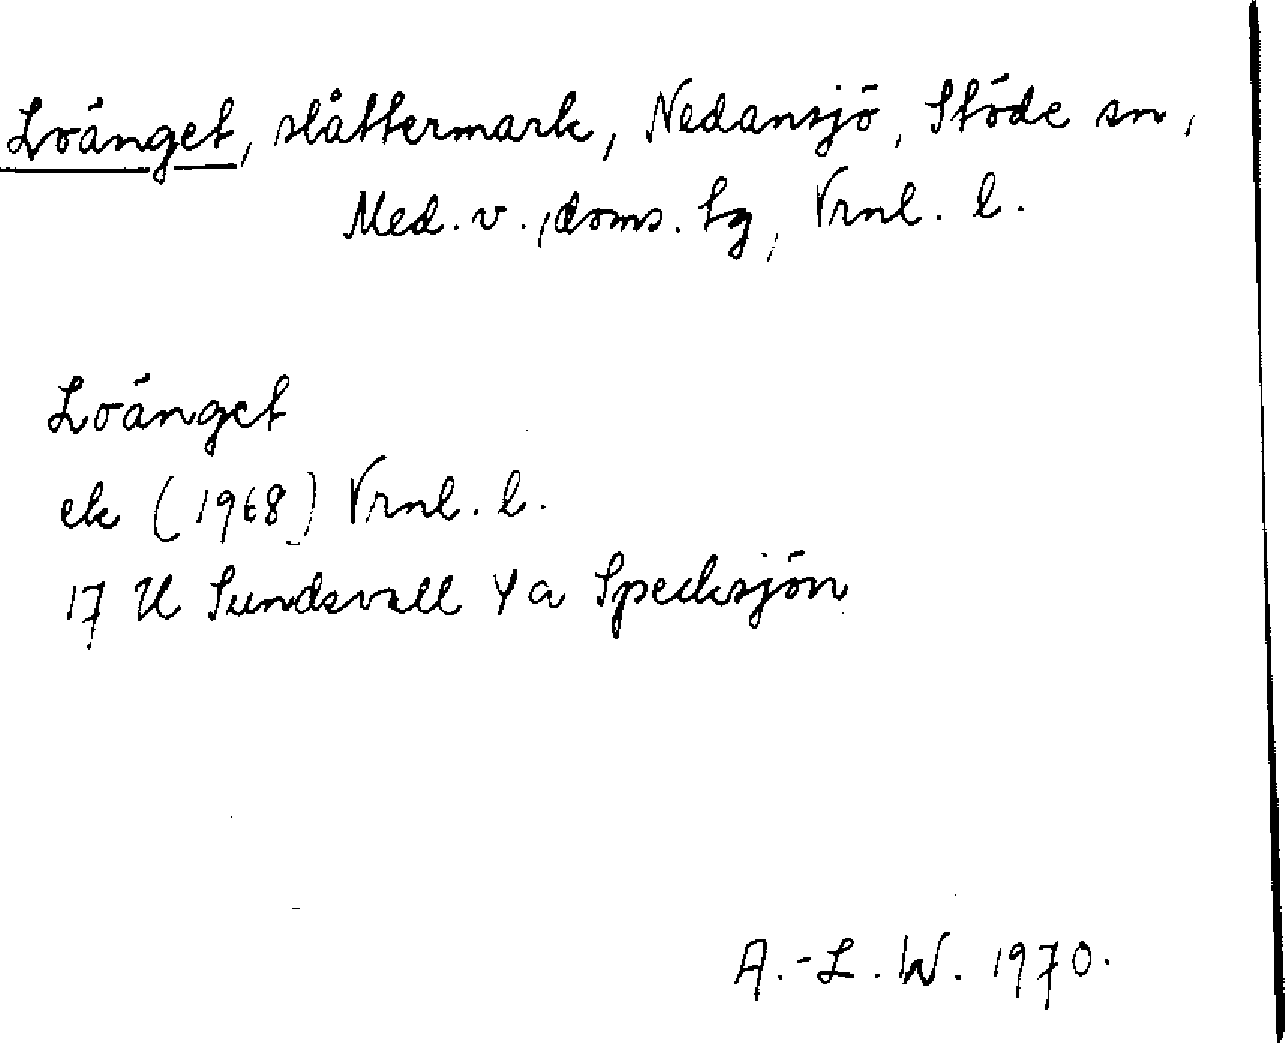 Loänget, slåttermark, Nedansjö, Stöde sn,
Med. v., doms. sg, Vrnl. l.
Loänget
ek (1968) Vrnl. l.
17 H Sundsvall 4 a Specksjön
A.-L. W. 1970.